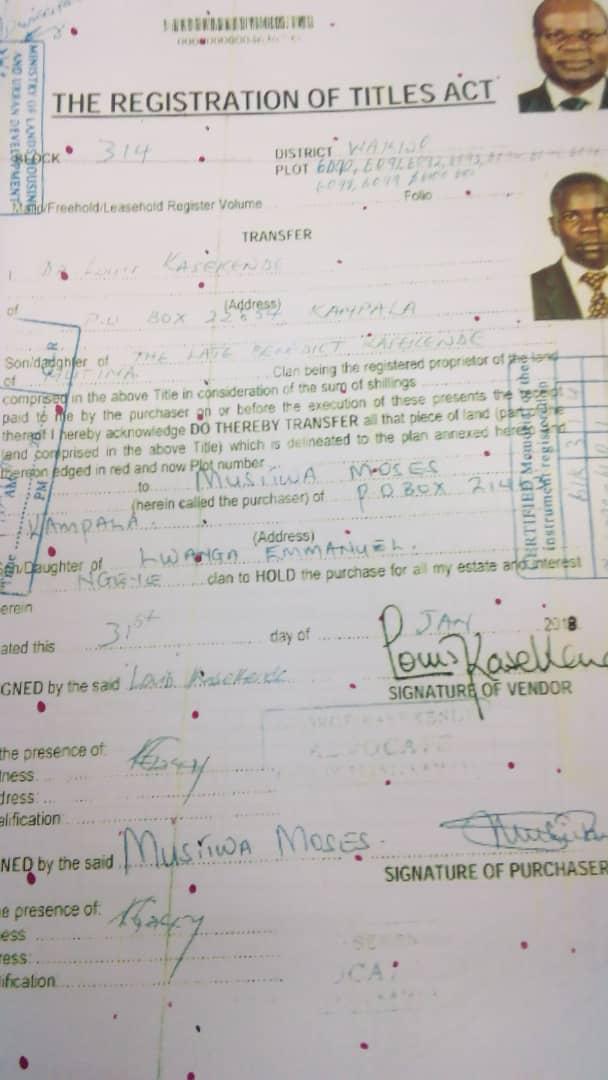 MINISTRY OF LANDS HOUSING
AND URBAN DEVELOPMENT
THE REGISTRATION OF TITLES ACT
BLOCK 314
DISTRICT WAKISO
PLOT 6090, 6091, 6092, 6093,
6098, 6099
/Freehold/Leasehold Register Volume
Folio
TRANSFER
I, Dr Louis KASEKENDE
of P.O BOX KAMPALA
(Address)
Son/daughter of THE LATE BENEDICT KASEKENDE
of Clan being the registered proprietor of the land
comprised in the above Title in consideration of the sum of shillings
paid to me by the purchaser on or before the execution of these presents the receipt
thereof I hereby acknowledge DO THEREBY TRANSFER all that piece of land (part of the
land comprised in the above Title) which is delineated to the plan annexed hereto and
thereon edged in red and now Plot number
to MUSIIWA MOSES
(herein called the purchaser) of P.O BOX
KAMPALA.
(Address)
Son/Daughter of LWANGA EMMANUEL.
NGEYE clan to HOLD the purchase for all my estate and interest
erein
ated this 31st day of JAN 2018
GNED by the said Louis Kasekende
Louis Kasekende
SIGNATURE OF VENDOR
the presence of:
ness
dress:
alification
ADVOCATE
NED by the said MUSIIWA MOSES.
SIGNATURE OF PURCHASER
e presence of:
ess
ress:
ification
CERTIFIED
instrument registered
PM